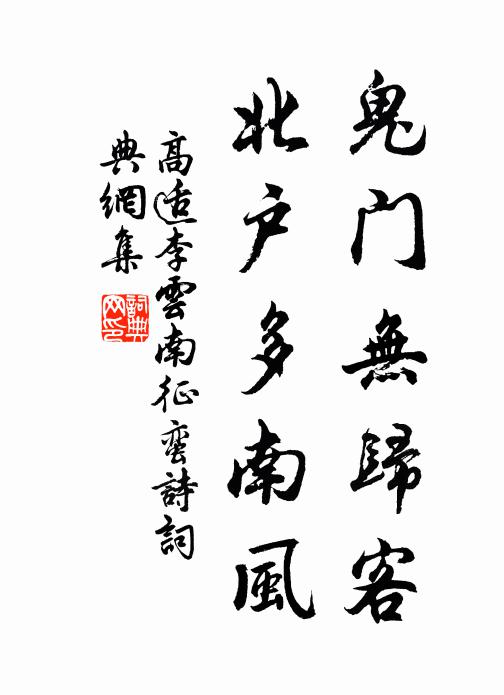 鬼门無歸客
北户多南風
高适李雲南征蛮詩詞
典網集
詞典网印